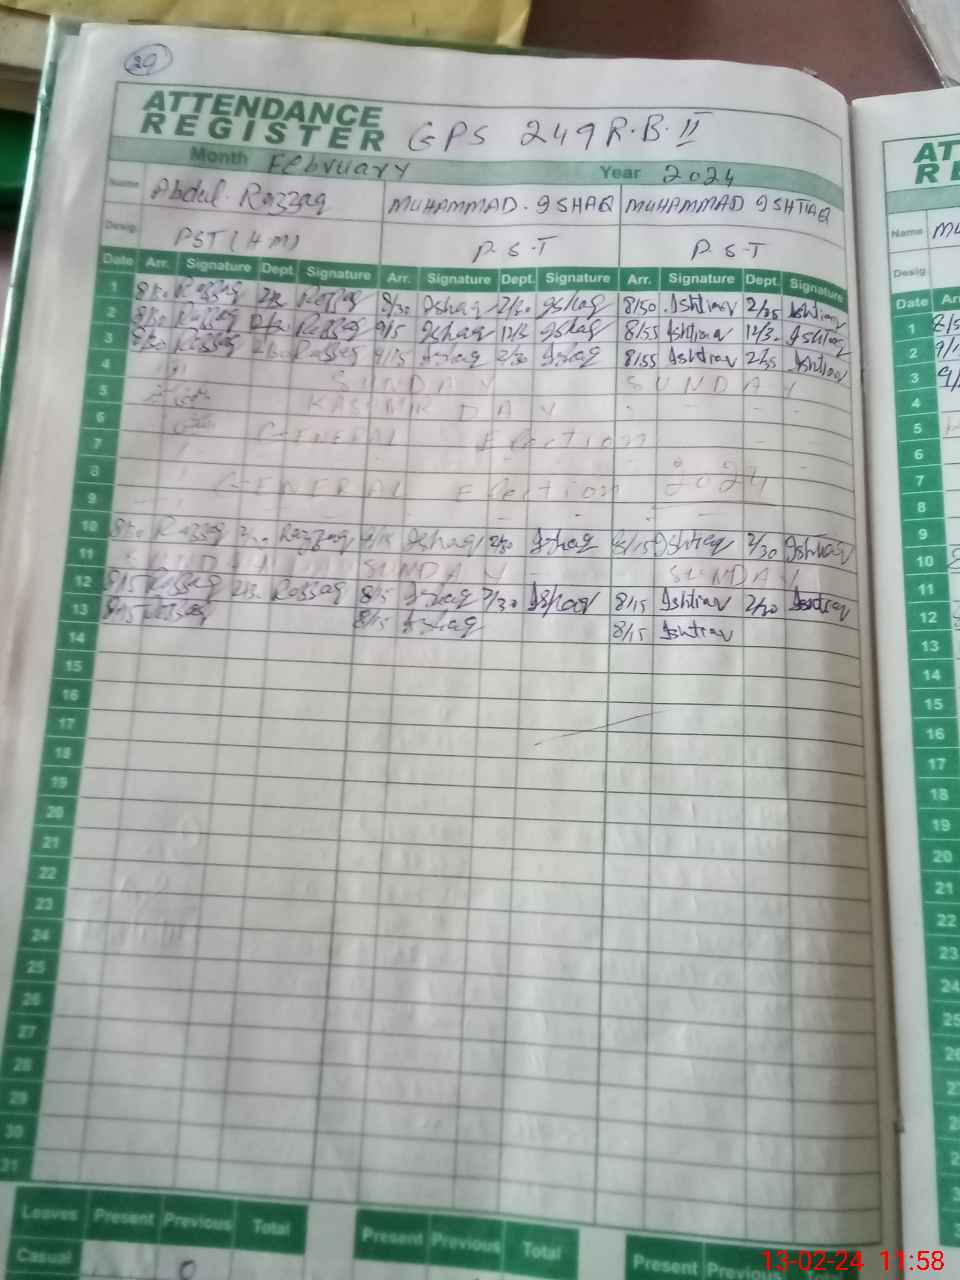 29
ATTENDANCE
REGISTER GPS 249 R.B. II
Month February Year 2024
Name Abdul Razzaq MUHAMMAD. ISHAQ MUHAMMAD ISHTIAQ
Desig. PST (HM) P.S.T P.S.T
Date Arr. Signature Dept. Signature Arr. Signature Dept. Signature Arr. Signature Dept. Signature
1 Razzaq Razzaq 8/30 Ishaq 2/30 Ishaq 8/50 Ishtiaq 2/35 Ishtiaq
2 8/50 Razzaq Razzaq 9/15 Ishaq Ishaq 8/55 Ishtiaq 12/3. Ishtiaq
3 8/50 Razzaq Razzaq Ishaq 2/30 Ishaq 8/55 Ishtiaq 2/35 Ishtiaq
4 SUNDAY SUNDAY
5 KASHMIR DAY
6
7 GENERAL Election
8
9 GENERAL Election 2024
10 Razzaq Razzaq Ishaq 2/30 Ishaq 8/15 Ishtiaq 2/30 Ishtiaq
11 SUNDAY SUNDAY SUNDAY
12 8/15 Razzaq Razzaq 8/15 Ishaq 2/30 Ishaq 8/15 Ishtiaq 2/30 Ishtiaq
13 8/15 Razzaq 8/15 Ishaq 8/15 Ishtiaq
14
15
16
17
18
19
20
21
22
23
24
25
26
27
28
29
30
31
Leaves Present Previous Total Present Previous Total Present Previous
Casual 0
AT
RE
Name MU
Desig.
Date Ar
1 8/5
2 9/
3 9/
4
5
6
7
8
9
10
11
12
13
14
15
16
17
18
19
20
21
22
23
24
25
13-02-24 11:58